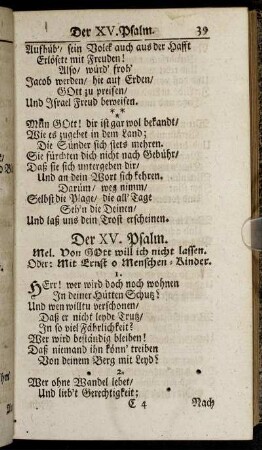 Der XV. Psalm. 39
Aufhüb', sein Volck auch aus der Hafft
Erlösete mit Freuden!
Also, würd' froh'
Jacob werden, hie auf Erden,
GOtt zu preisen,
Und Israel Freud beweisen.
***
Mein GOtt! dir ist gar wol bekandt,
Wie es zugehet in dem Land;
Die Sünder sich stets mehren.
Sie fürchten dich nicht nach Gebühr,
Daß sie sich untergeben dir,
Und an dein Wort sich kehren.
Darüm, weg nimm,
Selbst die Plage, die all' Tage
Seh'n die Deinen,
Und laß uns dein Trost erscheinen.
Der XV. Psalm.
Mel. Von GOtt will ich nicht lassen.
Oder: Mit Ernst o Menschen-Kinder.
1.
HErr! wer wird doch noch wohnen
In deiner Hütten Schutz?
Und wen willtu verschonen,
Daß er nicht leyde Trutz,
In so viel Fährlichkeit?
Wer wird beständig bleiben!
Daß niemand ihn könn' treiben
Von deinem Berg mit Leyd?
2.
Wer ohne Wandel lebet,
Und lieb't Gerechtigkeit;
C 4 Nach